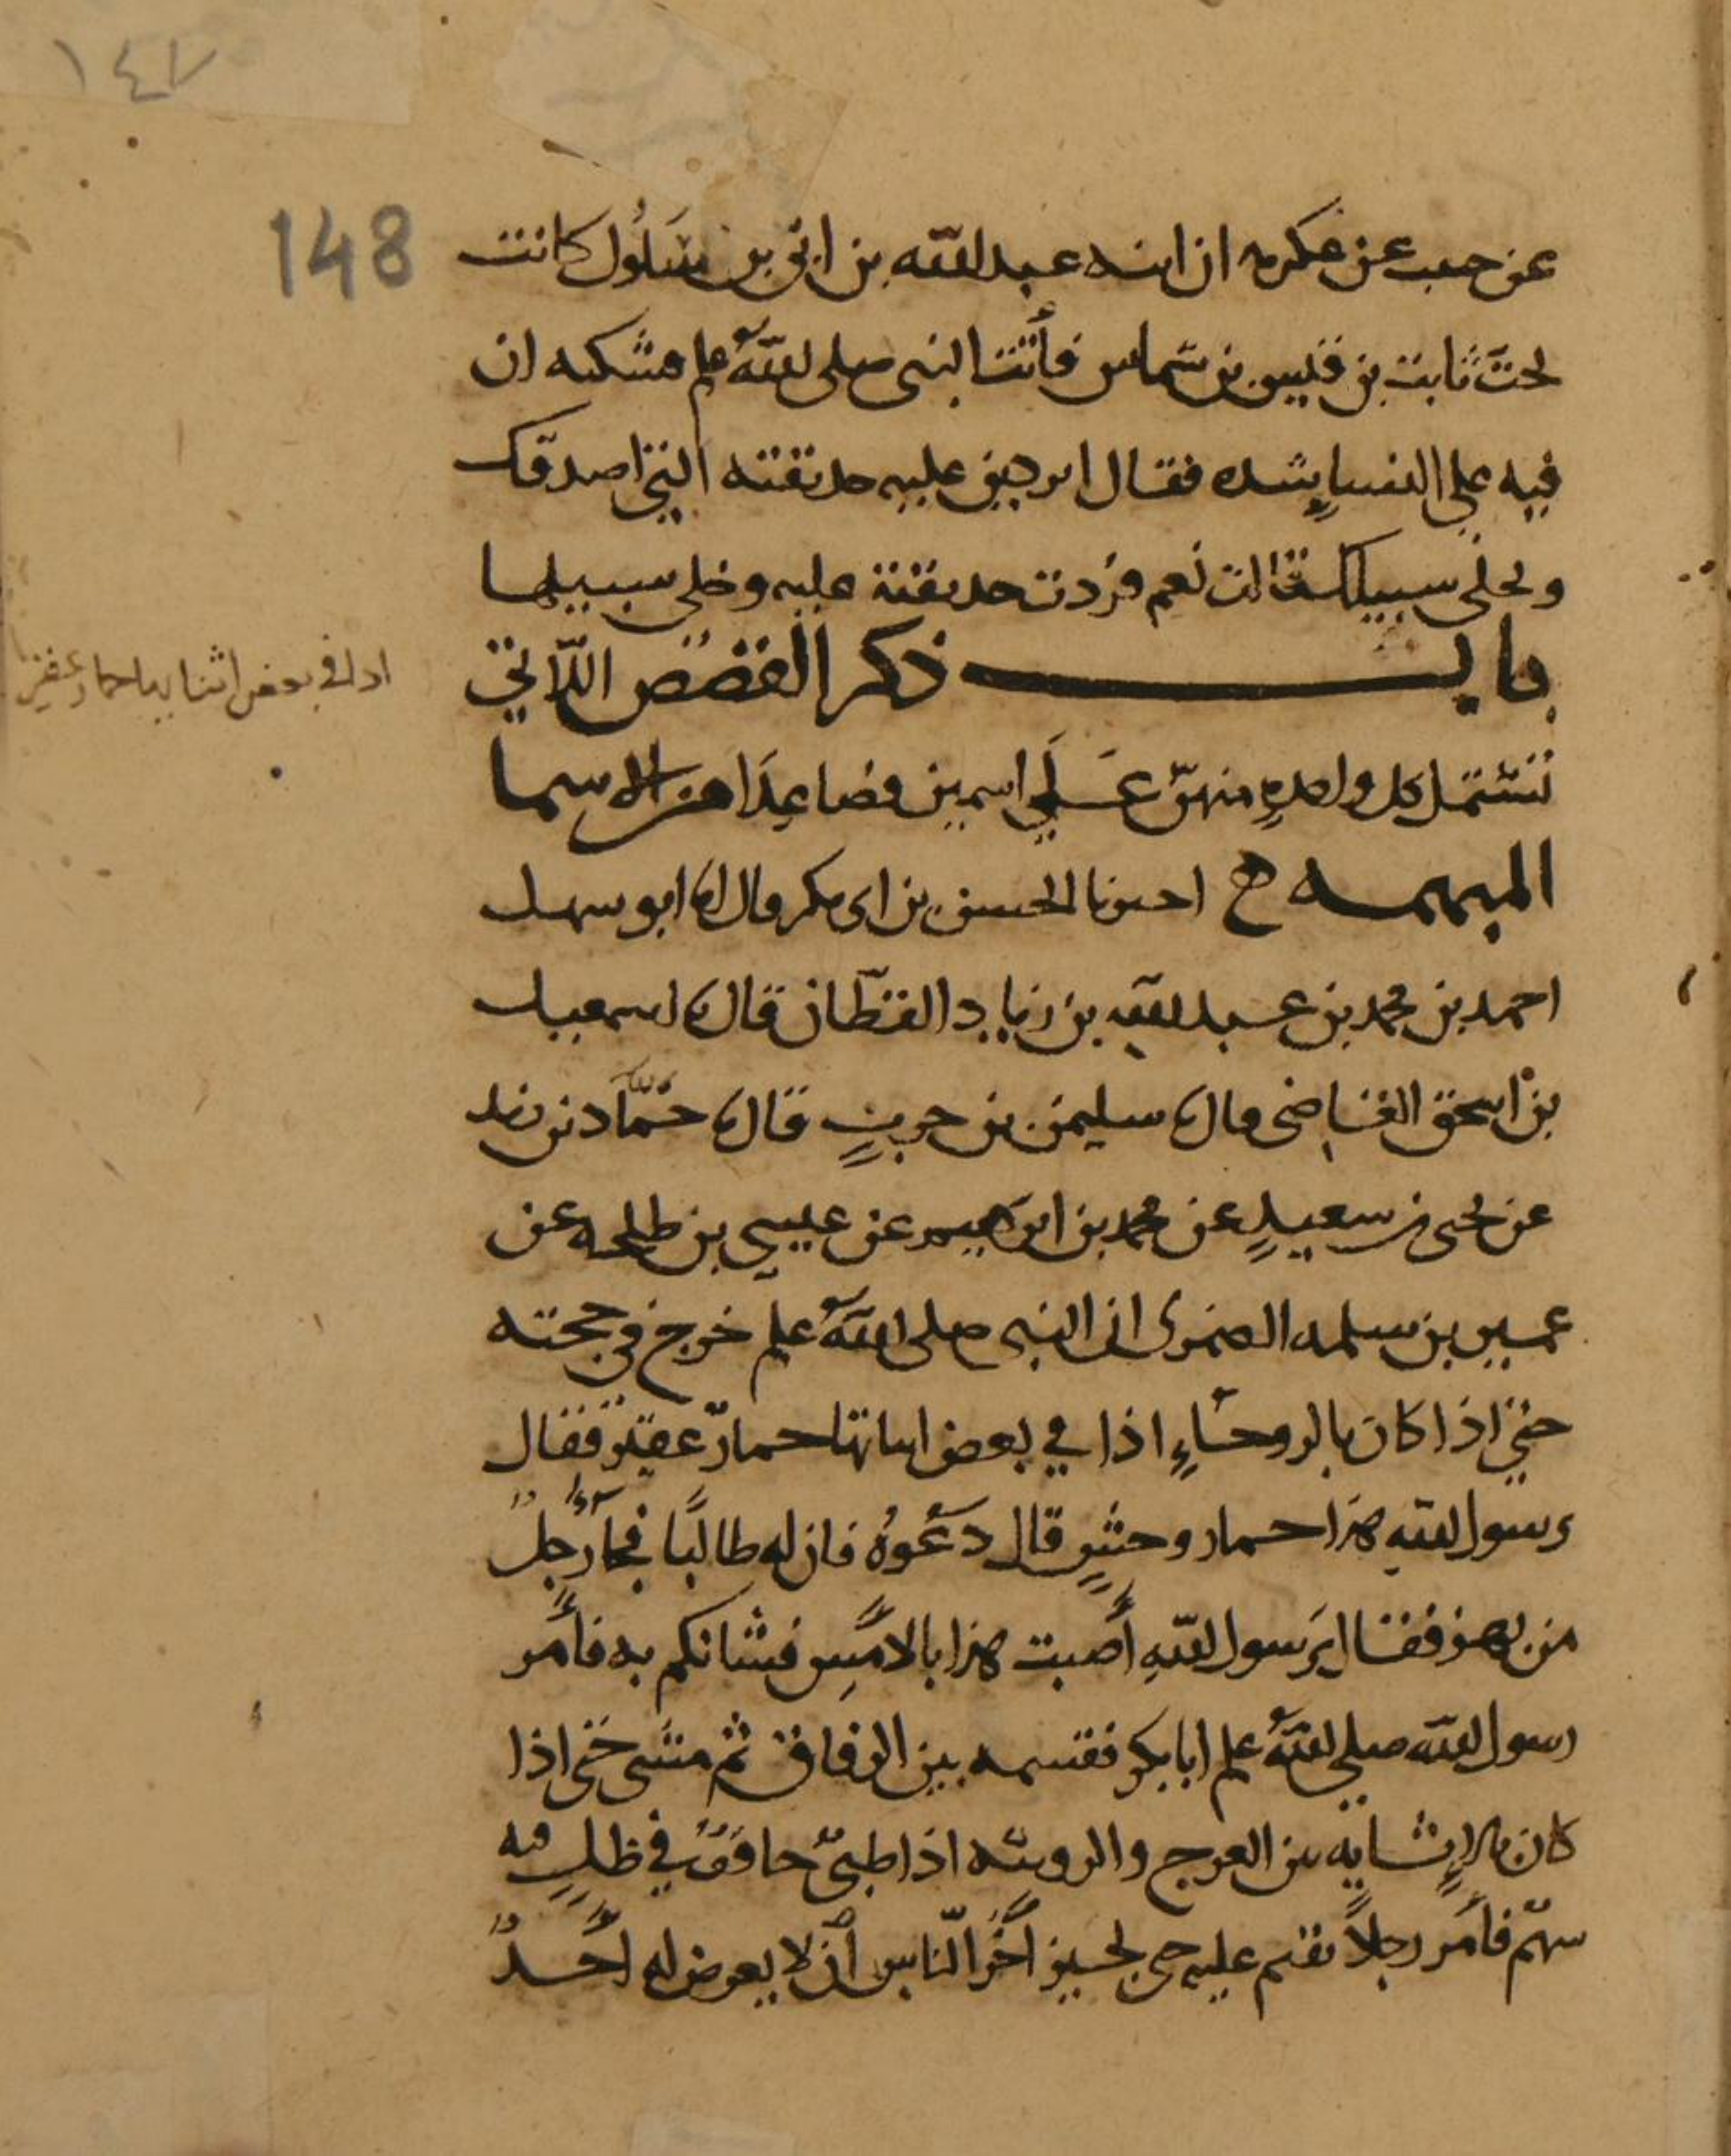 ١٤٧
148
عن حبيب عن عكرمه ان ابنه عبد الله بن ابي بن سَلُول كانت
تحت ثابت بن قيس بن شماس فأتت النبي صلى الله علم مشكيه ان
فيه على النساءِ شده فقال اتردين عليه حديقته التي اصدقك
ويخلى سبيلك قالت نعم فردت حديقته عليه وخلى سبيلها
باب ذكر القصص اللّاتي
تشتمل كل واحدةٍ منهنّ عَلَي اسمين فصاعِدَا من الاسما
المبهمه ح اخبرنا الحسن بن ابي بكر قال انا ابو سهل
احمد بن محمد بن عبد الله بن زياد القطّان قال نا اسمعيل
بن اسحق القاضي قال نا سليمن بن حربٍ قال نا حمّاد بن زيد
عن يحيى بن سعيدٍ عن محمد بن ابرهيم عن عيسى بن طلحه عن
عمير بن سلمه الضمرى ان النبي صلى الله علم خرج في حجته
حتي اذا كان بالروحاءِ اذا في بعض اثنائها حمارٌ عقير فقال
رسول الله هذا حمار وحشٍ قال دَعُوهُ فان له طالبًا فجآ رجلٌ
من بهز فقال يَرسول اللهِ أصبت هذا بالامسِ فشانكم به فأمر
رسول الله صلي الله علم ابا بكر فقسمه بين الرفاق ثم مشى حتى اذا
كان بالإثايه بين العرج والرويثه اذا ظبيٌ حاقفٌ في ظلٍ فيه
سهم فأمر رجلاً يقم عليه حتى يجيز اخر النّاس أن لا يعرض له أحدٌ
اذا في بعض اثنايها حمار عقير